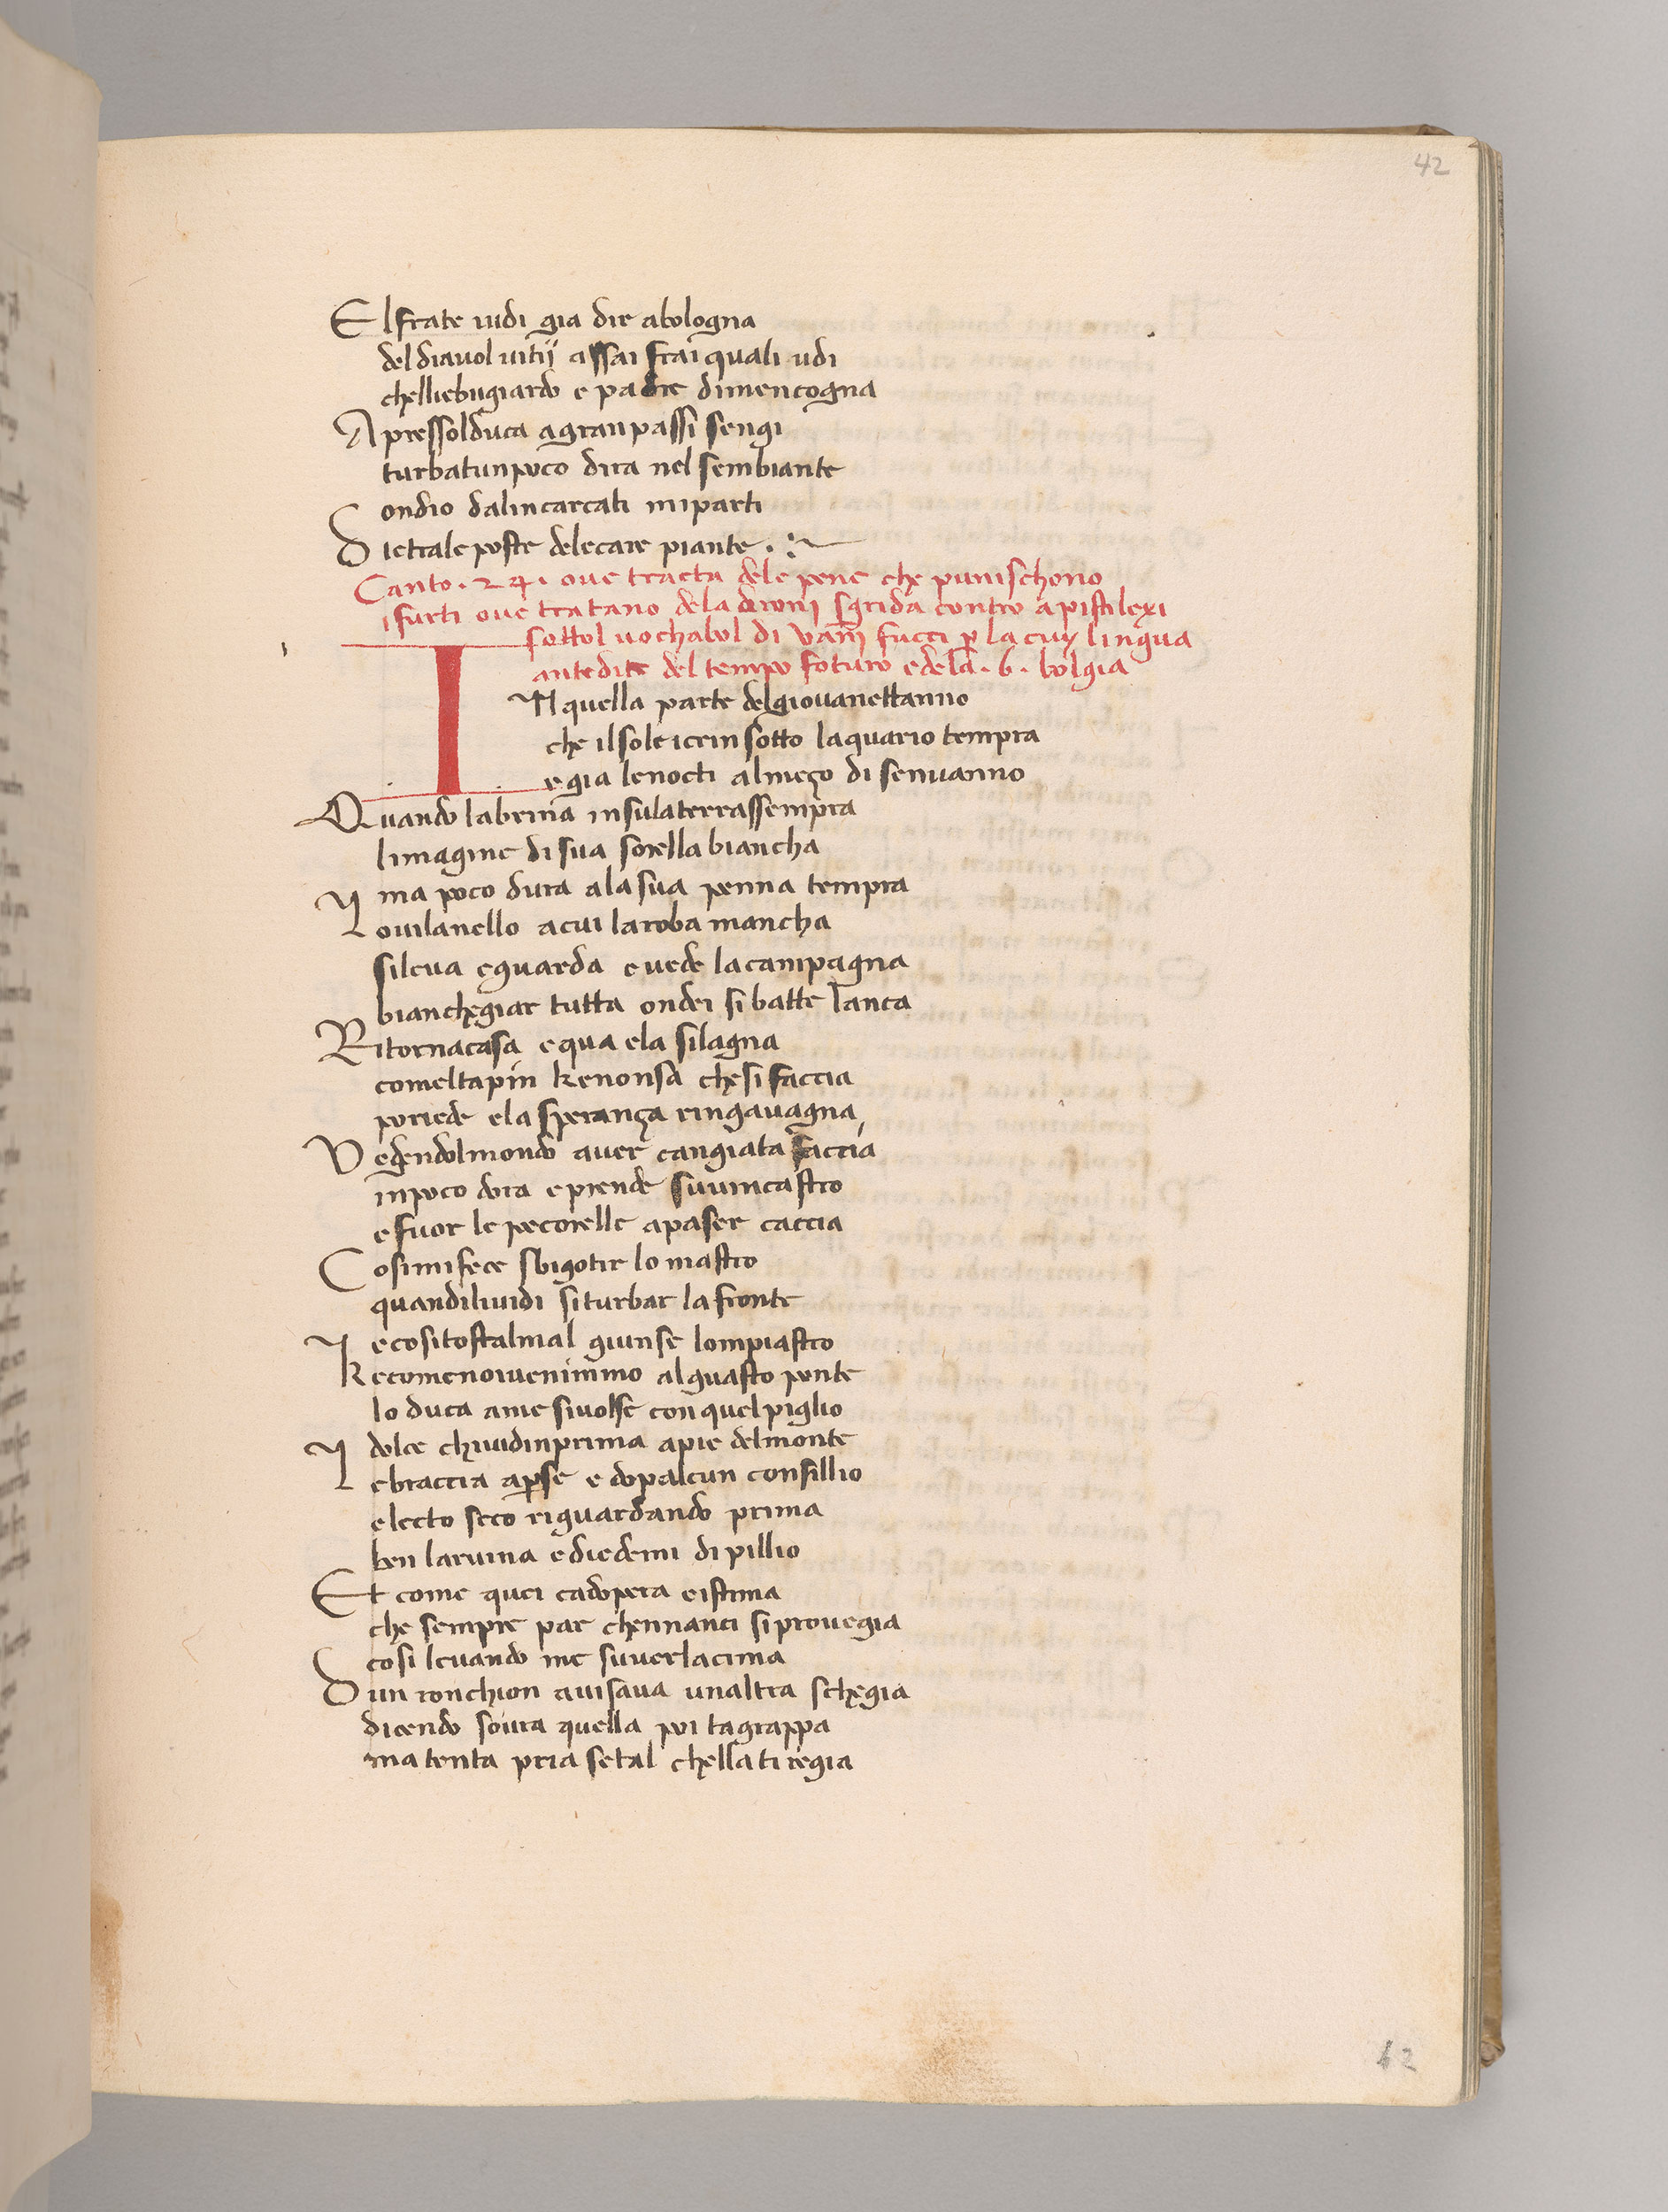 42
El frate udi gia dir a bologna
del diavol vitii assai frai quali udi
chellie bugiardo e padre di mencogna
Apressol duca a gran passi sen gi
turbatun poco dira nel sembiante
ondio dalincarcati mi parti
Dietrale poste dele care piante.
Canto . 24 . ove tracta dele pene che punischono
i furti ove tratano dela droni sgrida contro a pistilexi
sottol vochabol di vani fucci p la cuy lingua
antedite del tempo foturo e dela . 6 . bolgia
IN quella parte del giovanettanno
che il sole i crin sotto laquario tempra
e gia le nocti al meço di sen vanno
Quando la brina in sula terrassempra
limagine di sua sorella biancha
ma poco dura ala sua penna tempra
Lo vilanello a cui la roba mancha
si leva e guarda e vede la campagna
bianchegiar tutta ondei si batte lanca
Ritornacasa e qua e la si lagna
comel tapin ke non sa che si faccia
poi riede e la sperança ringavagna
Vedendol mondo aver cangiata faccia
in poco dora e prende suu vincastro
e fuor le pecorelle a pascer caccia
Cosi mi fece sbigotir lo mastro
quandi li vidi si turbar la fronte
e cosi tostal mal giunse lompiastro
Ke come noi venimmo al guasto ponte
lo duca a me si volse con quel piglio
dolce chi vidi in prima a pie del monte
Le braccia apse e dopalcun consillio
electo seco riguardando prima
ben la ruina e diedemi di pillio
Et come quei cadopera e istima
che sempre par chennanci si provegia
cosi levando me su ver la cima
Dun ronchion avisava unaltra schegia
dicendo sovra quella poi tagrappa
ma tenta pria se tal chella ti regia
42